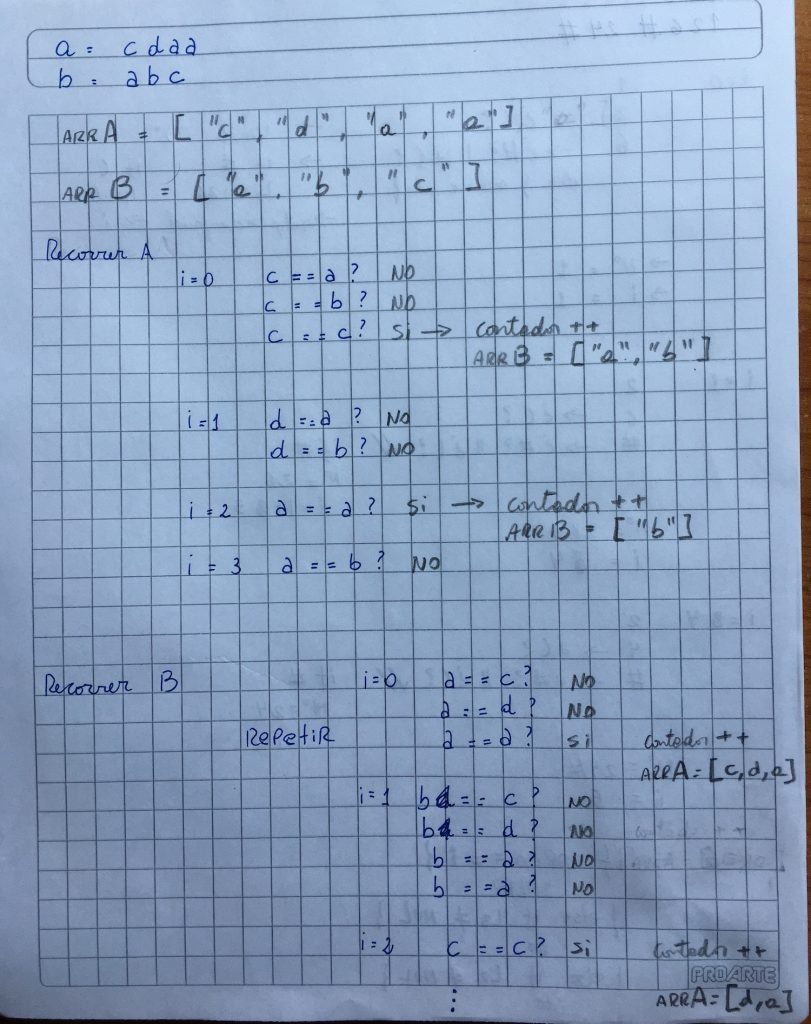 a = cdaa
b = abc
ARRA = [ "c" , "d" , "a" , "a" ]
ARRB = [ "a" , "b" , "c" ]
Recorrer A
i=0 c == a ? NO
c == b ? NO
c == c ? Si → contador ++
ARRB = [ "a", "b" ]
i=1 d == a ? NO
d == b ? NO
i=2 a == a ? Si → contador ++
ARRB = [ "b" ]
i = 3 a == b ? NO
Recorrer B i=0 a == c ? NO
a == d ? NO
RepetiR a == a ? Si contador ++
ARRA = [c,d,a]
i=1 b == c ? NO
b == d ? NO
b == a ? NO
b == a ? NO
i=2 c == c ? Si contador ++
PROARTE
⋮ ARRA = [d,a]